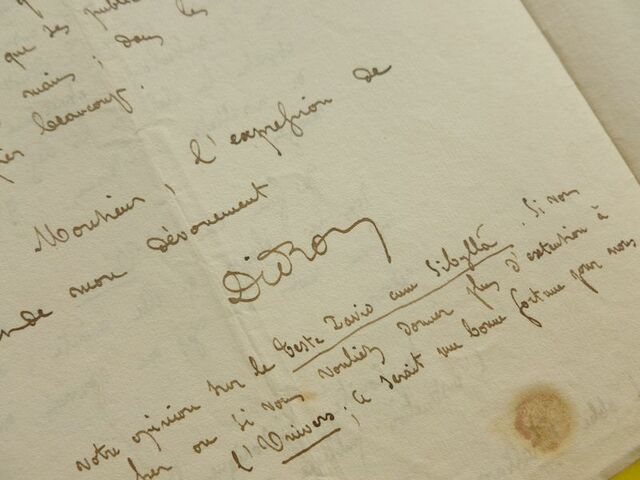 que ses public
mains ; dans les
beaucoup.
Monsieur, l'expression de
mon dévouement
Didron
votre opinion sur le teste David cum Sibyllâ. Si vous
ou si vous vouliez donner plus d'extention à
l'Univers ; ce serait une bonne fortune pour nous